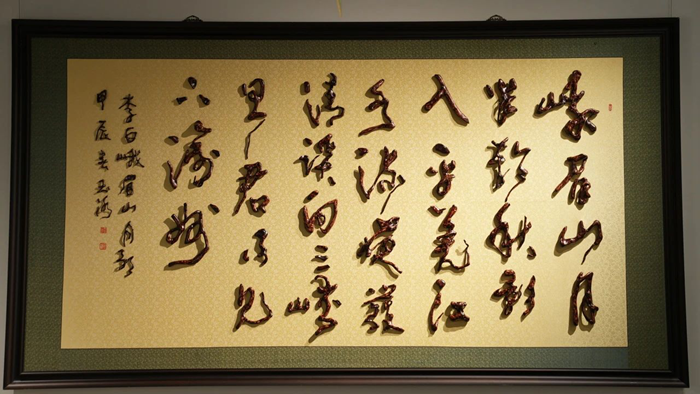 峨眉山月
半輪秋影
入平羌江
水流夜發
清溪向三峽
思君不見
下渝州
李白峨眉山月歌
甲辰春